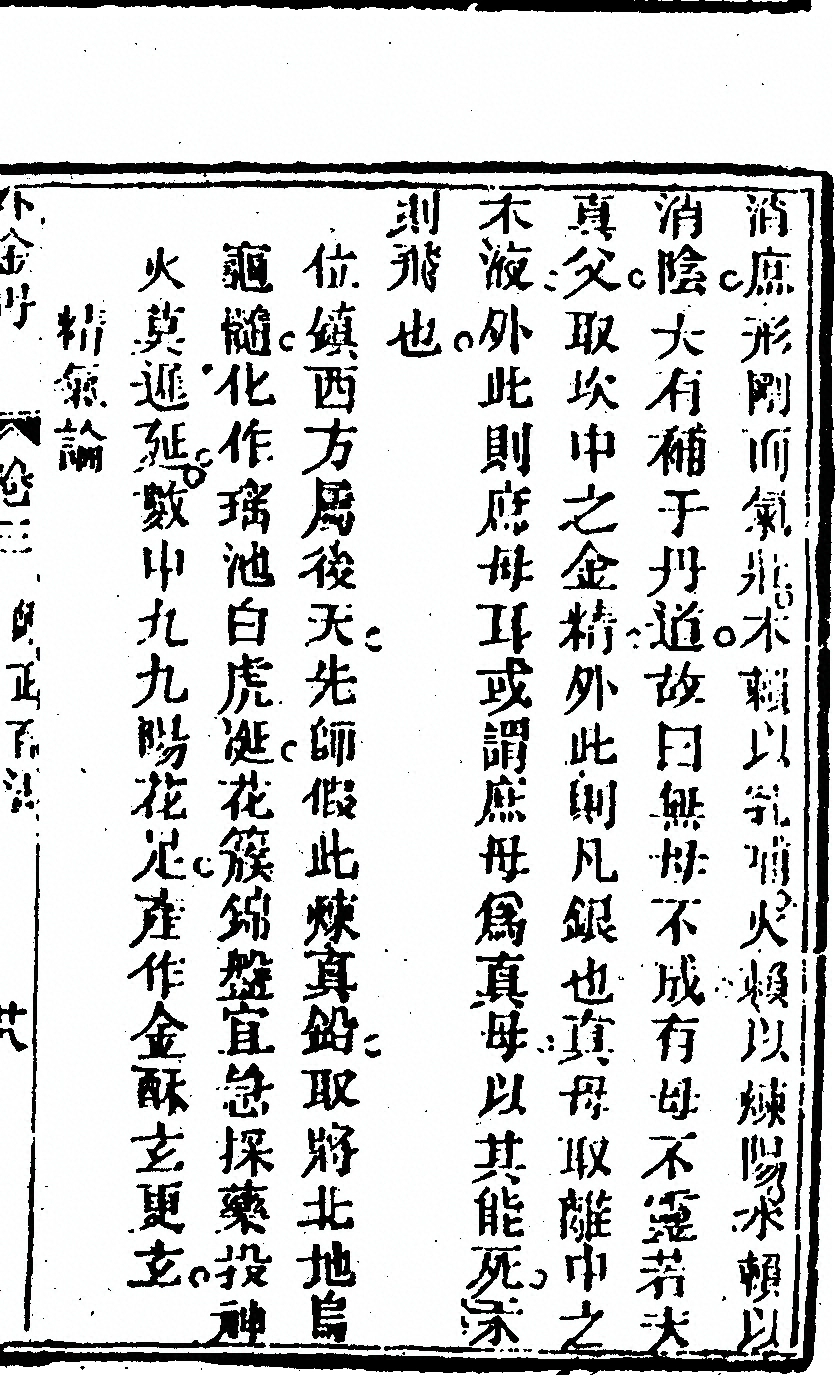 消庶形剛而氣非木賴以乳哺火賴以煉陽水賴以
消陰大有補于丹道故曰無母不成有母不靈若夫
真父取坎中之金精外此則凡銀也真母取離中之
木液外此則庶母耳或謂庶母爲真母以其能死汞
則飛也
位鎮西方屬後天先師假此煉真鉛取將北地烏
龜髓化作瑤池白虎涎花簇錦盤宜急採藥投神
火莫遲延數中九九陽花足產作金酥玄更玄
精氣論
外金丹 卷三